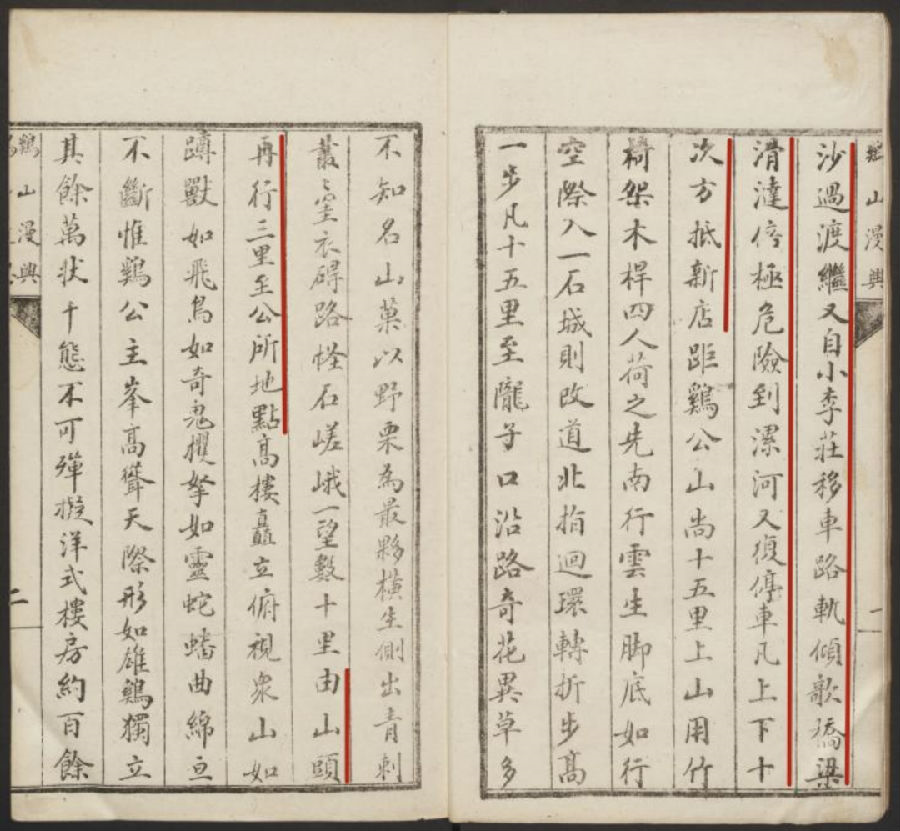 山漫興
一
沙過渡繼又自小李莊移車路軌傾欹橋梁
滑澾倍極危險到漯河又復停車凡上下十
次方抵新店距鷄公山尚十五里上山用竹
椅架木桿四人荷之先南行雲生脚底如行
空際入一石城則改道北指迴環轉折步高
一步凡十五里至隴子口沿路奇花異草多
不知名山菓以野栗為最夥橫生側出青刺
叢叢窒衣碍路怪石嵯峨一望數十里由山頭
再行三里至公所地點高樓矗立俯視衆山如
蹲獸如飛鳥如奇鬼攫拏如靈蛇蟠曲綿亘
不斷惟鷄公主峯高聳天際形如雄鷄獨立
其餘萬狀千態不可殫擬洋式樓房約百餘
鷄山漫興
二